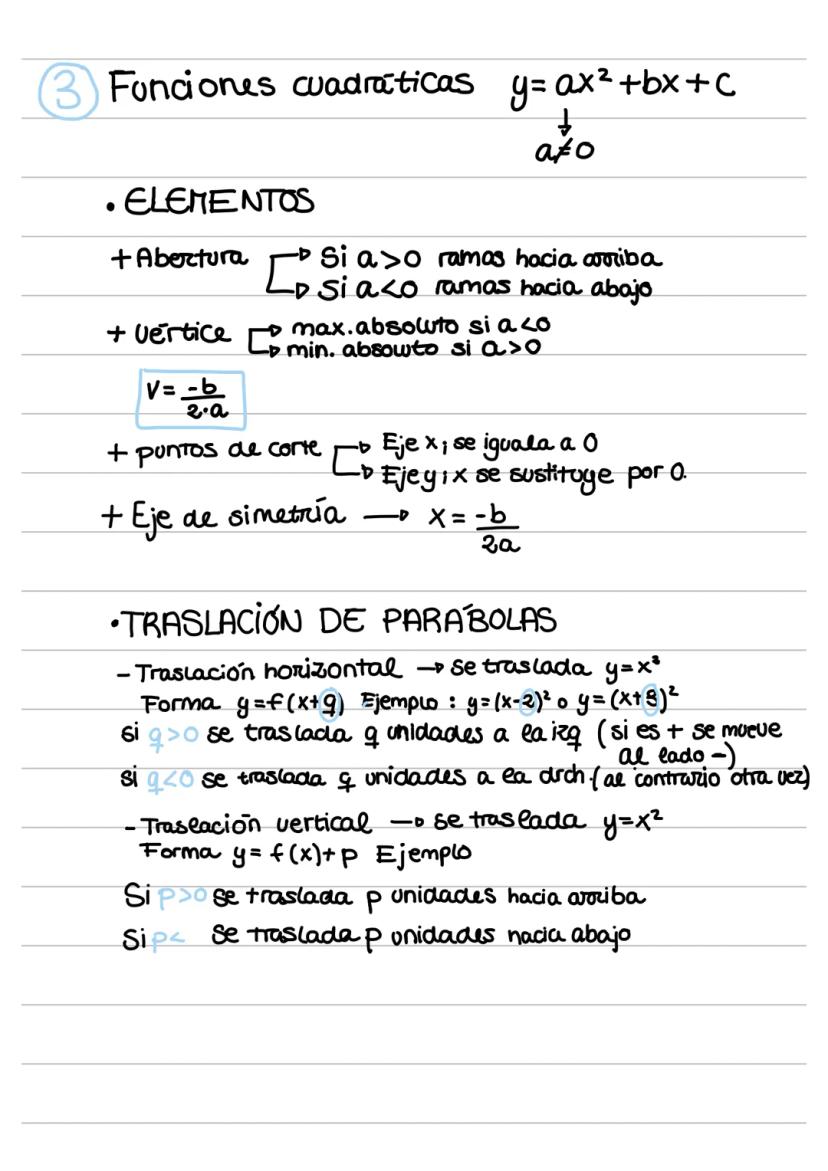 3 Funciones cuadráticas y=ax²+bx+c
↓
a≠0
• ELEMENTOS
+ Abertura → Si a>0 ramas hacia arriba
→ Si a<0 ramas hacia abajo
+ vértice → max. absoluto si a<0
→ min. absoluto si a>0
V= -b
2·a
+ puntos de corte → Eje x; se iguala a 0
→ Eje y; x se sustituye por 0.
+ Eje de simetría → x = -b
2a
• TRASLACIÓN DE PARÁBOLAS
- Traslación horizontal → se traslada y=x²
Forma y=f(x+q) Ejemplo: y=(x-2)² o y=(x+3)²
si q>0 se traslada q unidades a la izq (si es + se mueve
al lado -)
si q<0 se traslada q unidades a la drch. (al contrario otra vez)
- Traslación vertical → se traslada y=x²
Forma y= f(x)+p Ejemplo
Si p>0 se traslada p unidades hacia arriba
Si p< se traslada p unidades hacia abajo